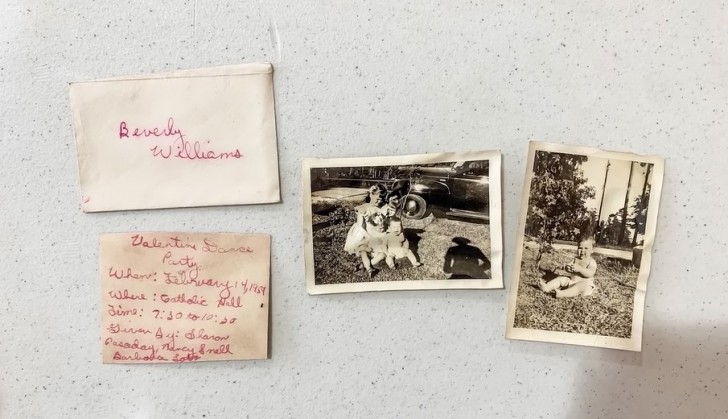 Beverly
Williams
Valentine Dance
Party
When: February 14, 1959
Where: Catholic Hall
Time: 7:30 to 10:30
Given By: Sharon
Nancy Snell
Barbara